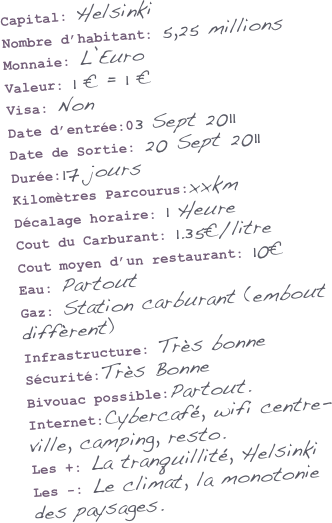 Capital: Helsinki
Nombre d'habitant: 5,25 millions
Monnaie: L'Euro
Valeur: 1 € = 1 €
Visa: Non
Date d'entrée:03 Sept 2011
Date de Sortie: 20 Sept 2011
Durée:17 jours
Kilomètres Parcourus:xxkm
Décalage horaire: 1 Heure
Cout du Carburant: 1.35€/litre
Cout moyen d'un restaurant: 10€
Eau: Partout
Gaz: Station carburant (embout
différent)
Infrastructure: Très bonne
Sécurité:Très Bonne
Bivouac possible:Partout.
Internet:Cybercafé, wifi centre-
ville, camping, resto.
Les +: La tranquillité, Helsinki
Les -: Le climat, la monotonie
des paysages.